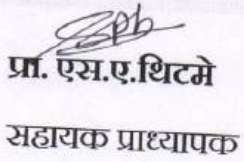 प्रा. एस.ए.थिटमे
सहायक प्राध्यापक